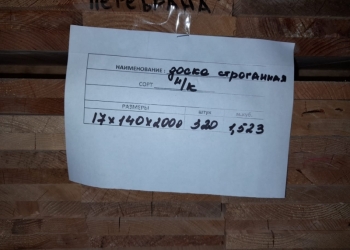 ПЕРЕБРАНА
НАИМЕНОВАНИЕ доска строганная
СОРТ н/к
РАЗМЕРЫ ШТУК
17х140х2000 320 1,523